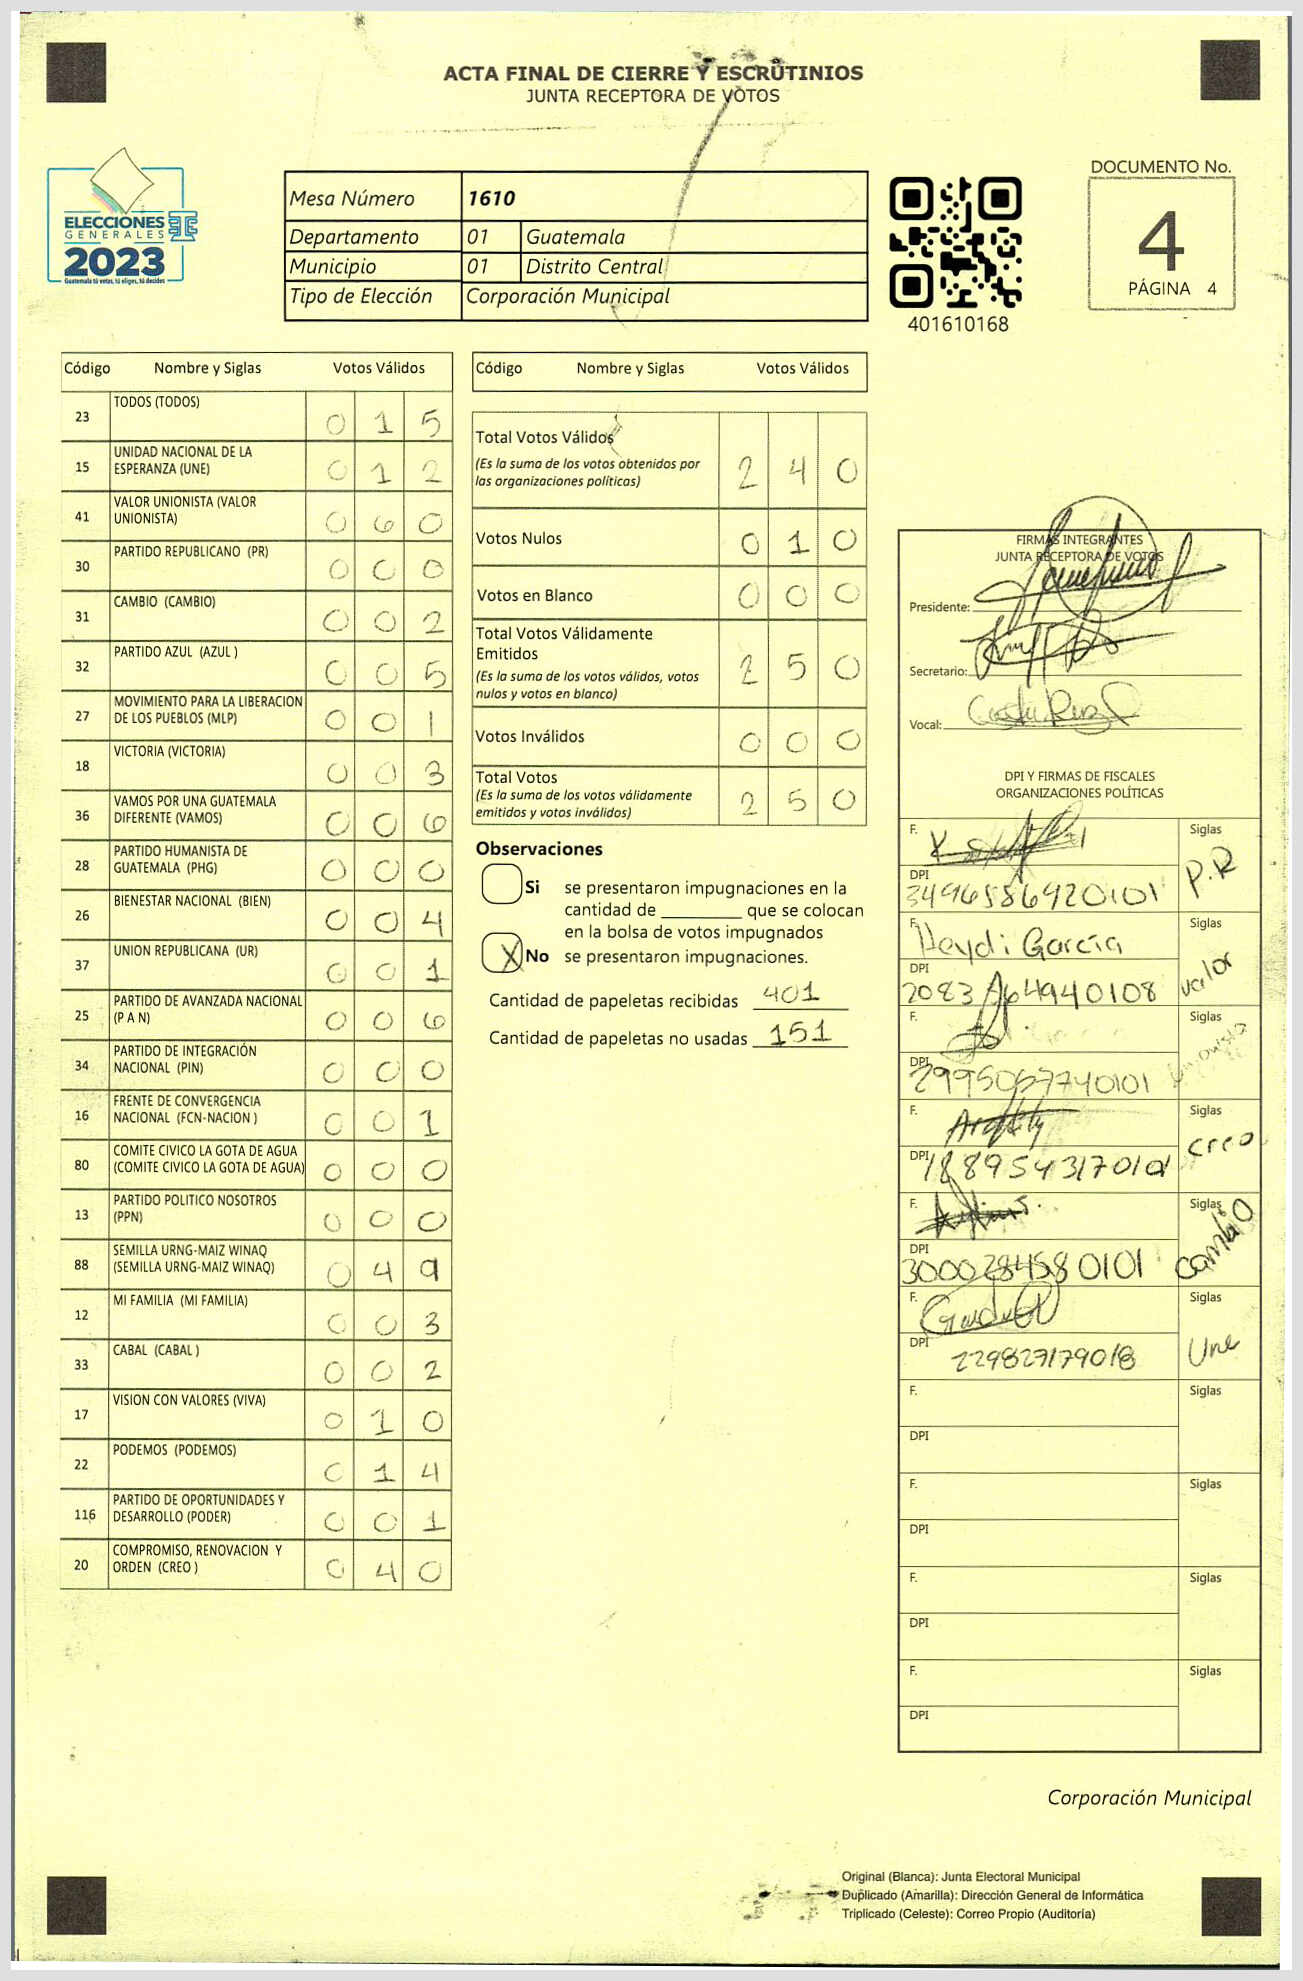 ACTA FINAL DE CIERRE Y ESCRUTINIOS
JUNTA RECEPTORA DE VOTOS
ELECCIONES
GENERALES
2023
Guatemala tú votas, tú eliges, tú decides
Mesa Número 1610
Departamento 01 Guatemala
Municipio 01 Distrito Central
Tipo de Elección Corporación Municipal
401610168
DOCUMENTO No.
4
PÁGINA 4
Código Nombre y Siglas Votos Válidos
23 TODOS (TODOS) 0 1 5
15 UNIDAD NACIONAL DE LA
ESPERANZA (UNE) 0 1 2
41 VALOR UNIONISTA (VALOR
UNIONISTA) 0 6 0
30 PARTIDO REPUBLICANO (PR) 0 0 0
31 CAMBIO (CAMBIO) 0 0 2
32 PARTIDO AZUL (AZUL ) 0 0 5
27 MOVIMIENTO PARA LA LIBERACION
DE LOS PUEBLOS (MLP) 0 0 1
18 VICTORIA (VICTORIA) 0 0 3
36 VAMOS POR UNA GUATEMALA
DIFERENTE (VAMOS) 0 0 6
28 PARTIDO HUMANISTA DE
GUATEMALA (PHG) 0 0 0
26 BIENESTAR NACIONAL (BIEN) 0 0 4
37 UNION REPUBLICANA (UR) 0 0 1
25 PARTIDO DE AVANZADA NACIONAL
(P A N) 0 0 6
34 PARTIDO DE INTEGRACIÓN
NACIONAL (PIN) 0 0 0
16 FRENTE DE CONVERGENCIA
NACIONAL (FCN-NACION ) 0 0 1
80 COMITE CIVICO LA GOTA DE AGUA
(COMITE CIVICO LA GOTA DE AGUA) 0 0 0
13 PARTIDO POLITICO NOSOTROS
(PPN) 0 0 0
88 SEMILLA URNG-MAIZ WINAQ
(SEMILLA URNG-MAIZ WINAQ) 0 4 9
12 MI FAMILIA (MI FAMILIA) 0 0 3
33 CABAL (CABAL ) 0 0 2
17 VISION CON VALORES (VIVA) 0 1 0
22 PODEMOS (PODEMOS) 0 1 4
116 PARTIDO DE OPORTUNIDADES Y
DESARROLLO (PODER) 0 0 1
20 COMPROMISO, RENOVACION Y
ORDEN (CREO ) 0 4 0
Código Nombre y Siglas Votos Válidos
Total Votos Válidos
(Es la suma de los votos obtenidos por
las organizaciones políticas) 2 4 0
Votos Nulos 0 1 0
Votos en Blanco 0 0 0
Total Votos Válidamente
Emitidos
(Es la suma de los votos válidos, votos
nulos y votos en blanco) 2 5 0
Votos Inválidos 0 0 0
Total Votos
(Es la suma de los votos válidamente
emitidos y votos inválidos) 2 5 0
Observaciones
Si se presentaron impugnaciones en la
cantidad de ________ que se colocan
en la bolsa de votos impugnados
X No se presentaron impugnaciones.
Cantidad de papeletas recibidas 401
Cantidad de papeletas no usadas 151
FIRMAS INTEGRANTES
JUNTA RECEPTORA DE VOTOS
Presidente:
Secretario:
Vocal:
DPI Y FIRMAS DE FISCALES
ORGANIZACIONES POLÍTICAS
F. Siglas
DPI P.R
F. Heydi García Siglas
DPI valor
F. Siglas
DPI 2995067740101
F. Siglas
DPI creo
F. Siglas
DPI 3000284580101 cambio
F. Siglas
DPI 229827179018 Une
F. Siglas
DPI
F. Siglas
DPI
F. Siglas
DPI
F. Siglas
DPI
Corporación Municipal
Original (Blanca): Junta Electoral Municipal
Duplicado (Amarilla): Dirección General de Informática
Triplicado (Celeste): Correo Propio (Auditoría)